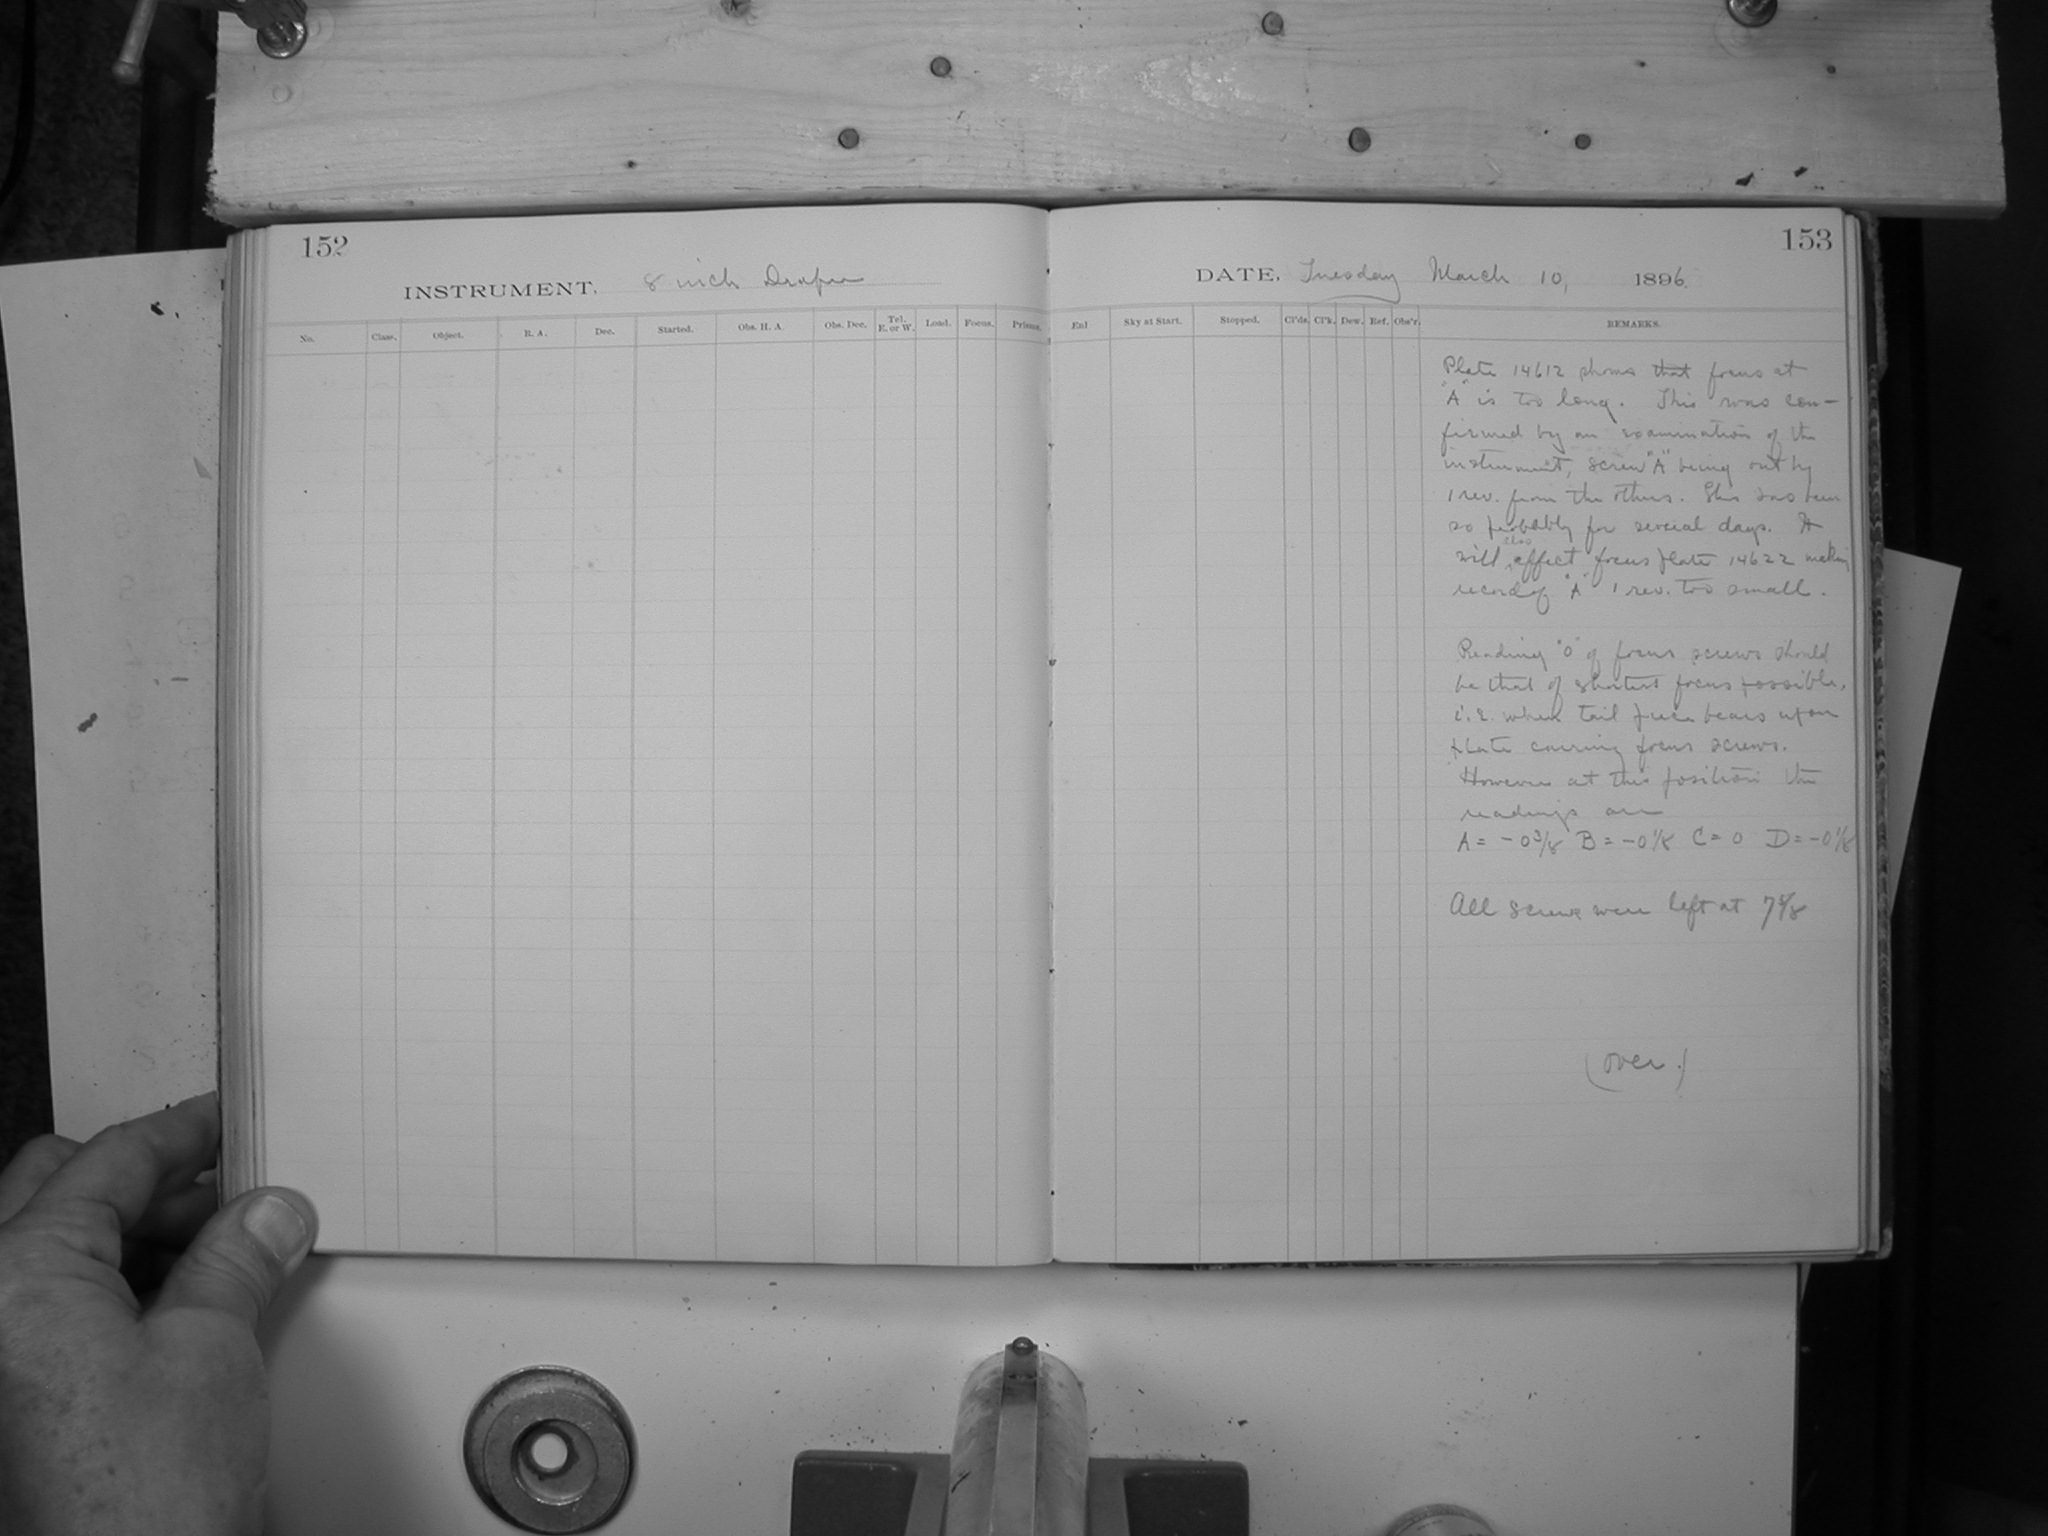 152
INSTRUMENT. 8 inch Draper
No. Class. Object. R. A. Dec. Started. Obs. H. A. Obs. Dec. Tel. E. or W. Load. Focus. Prisms.
153
DATE, Tuesday March 10, 1896.
Sky at Start. Stopped. Cl'ds. Cl'k. Dew. Ref. Obs'r. REMARKS.
Plate 14612 shows that focus at
"A" is too long. This was con-
firmed by an examination of the
instrument, screw "A" being out by
1 rev. from the others. This has been
so probably for several days. It
will also effect focus plate 14622 making
record of "A" 1 rev. too small.
Reading "0" of focus screws should
be that of shortest focus possible,
i.e. when tail piece bears upon
plate carring focus screws.
However at this position the
readings are
A = -0 3/8 B = -0 1/8 C = 0 D = -0 1/8
All screws were left at
(over.)